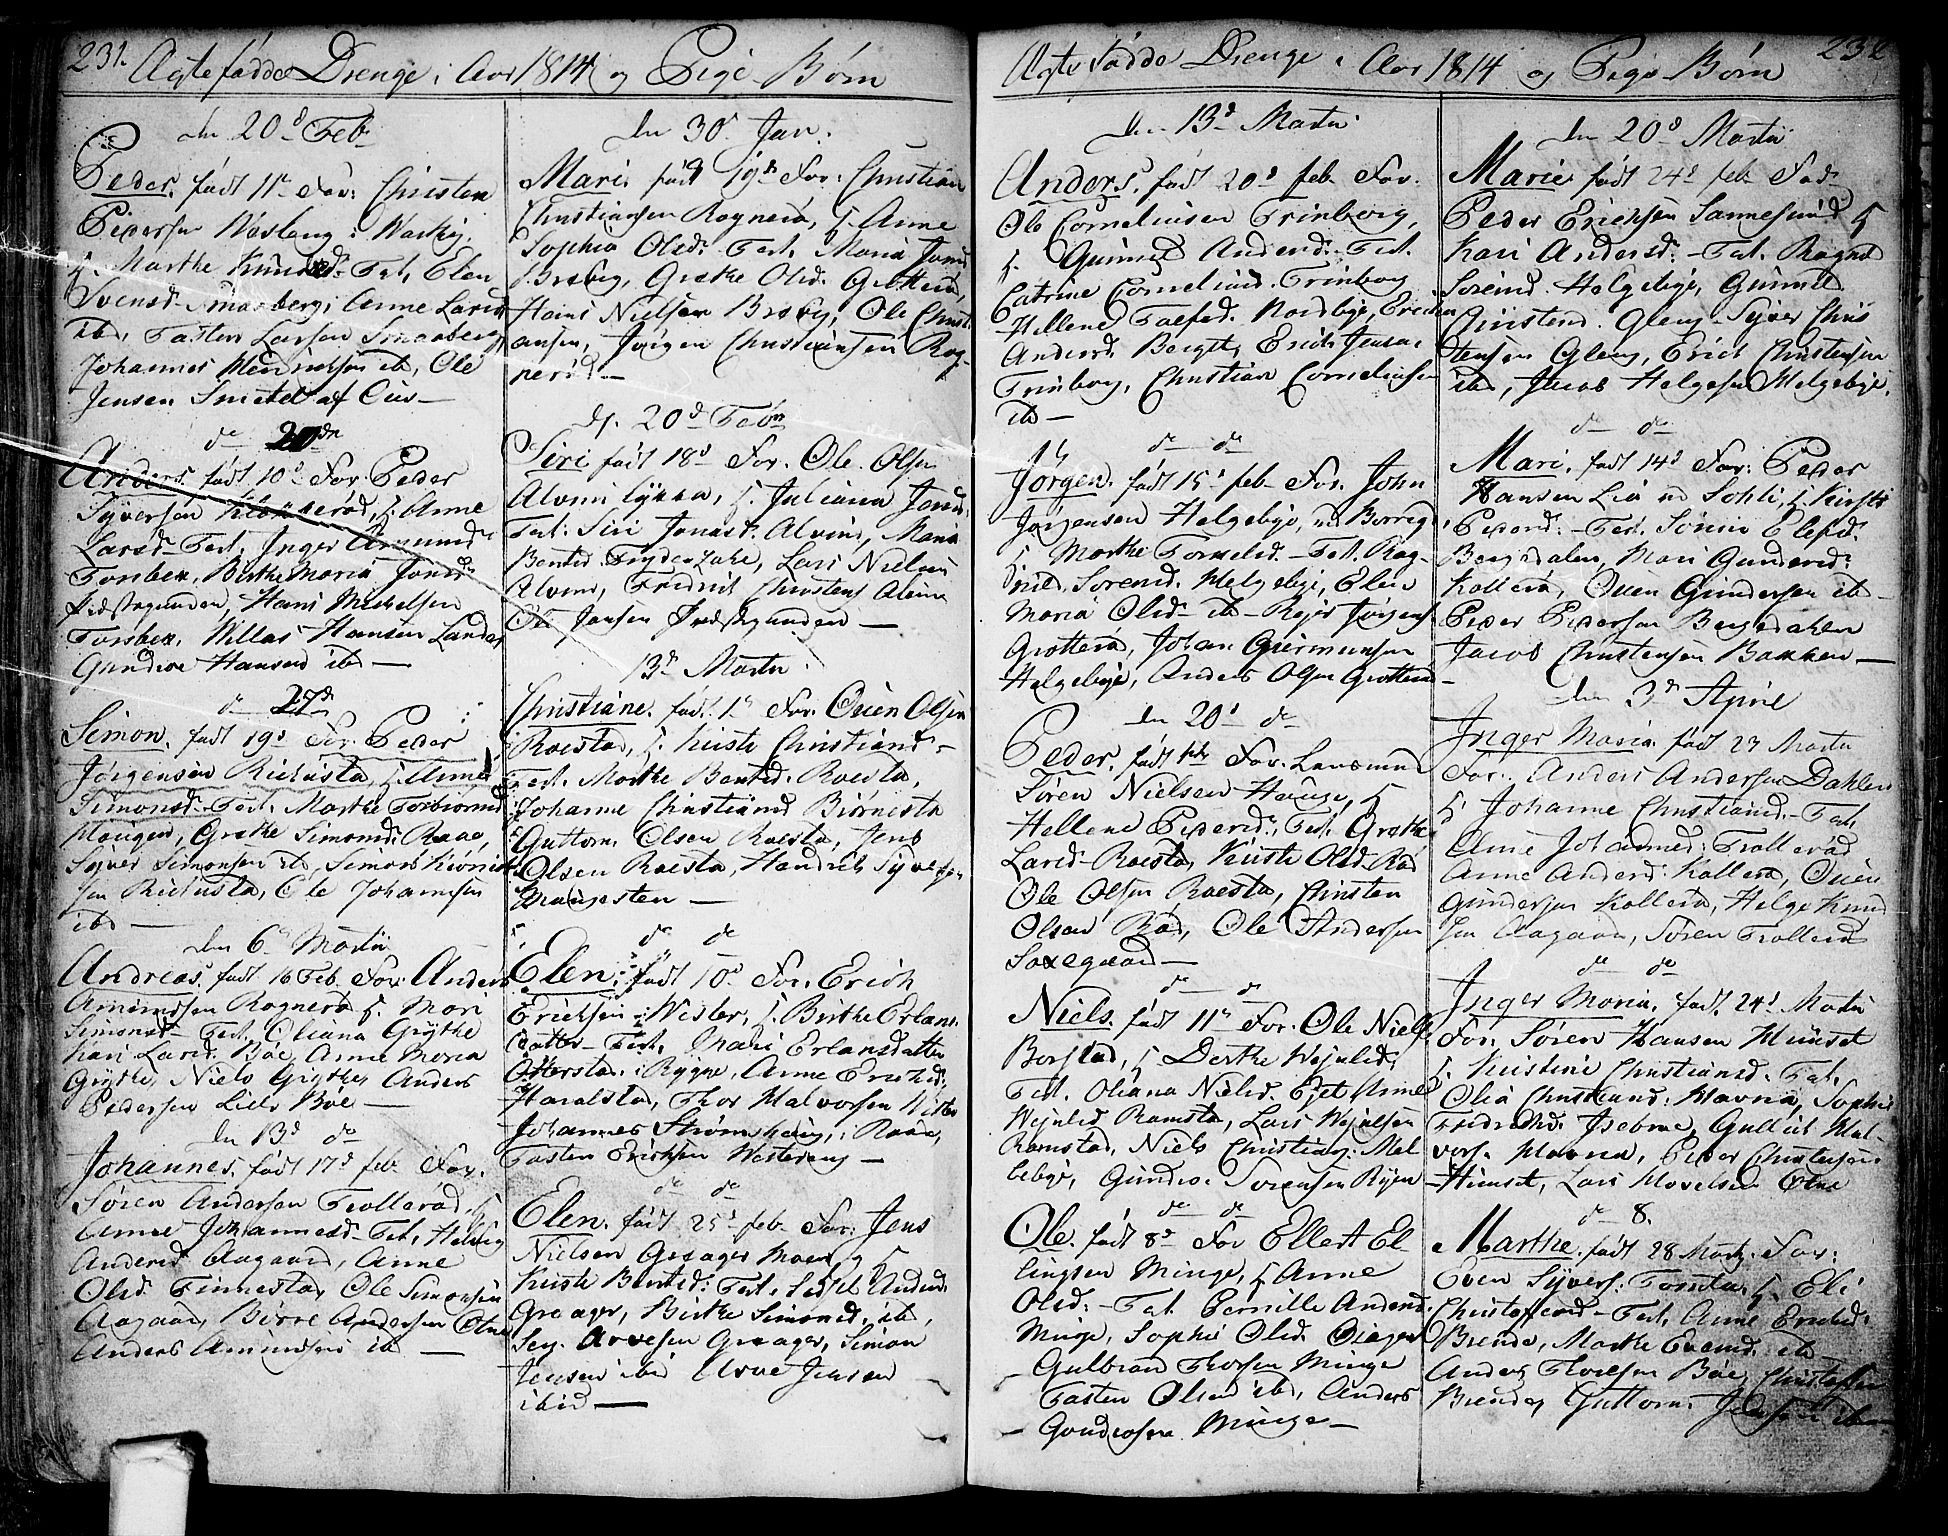 231. Ægtefødde Drenge i Aar 1814 og Pige Børn
den 20d Feb
Peder. født 11te For: Christen
Pedersen
M. Marthe Knudsd: Fat. Elen
Svensd. Smaaberg, Anne Larsd
ibd, Fasten Larsen Smaaberg
Johannes Henrichsen ibd, Ole
Jensen
de 20de
Anders. født 10d For. Peder
Syversen Kloккerød, M. Anne
Larsd. Fat. Inger Amunds
Torsbek, Berthe Maria Jonsd
Hans Michelsen
Torsbek, Willas Hansen
Gundroe Hansen ibd —
de 27de
Simon. født 19d For. Peder
Jørgensen Richusta, M. Anne
Simonsd. Fat. Marthe Torbiørnsd
Haugen, Grethe Simonsd. Raae,
Syver Simonsen ibd, Simon
sen Richusta, Ole Johannesen
ibd —
den 6te Martii
Andreas. født 16 Feb. For. Anders
Amundsen Rognerø M. Mari
Simonsd. Fat. Oliana Grythe
Kari Larsd. Bøe, Anne Maria
Grythe, Niels Grythe, Anders
Pedersen Liels Bøe —
den 13d de
Johannes. født 17d feb For.
Søren Andersen Trollerød, M
Anne Johannesd. Fat. Helvig
Andersd Aagaard, Anne
Olsd. Finnestad, Ole Simonsen
Aagaard, Børre Andersen
Anders Amundsen ibd —
den 30d Jan.
Mari. født 19de For: Christian
Christiansen Rognerø, M. Anne
Sophia Olsd. Fat. Maria Jonsd
Broby, Grethe Olsd. Grotterød,
Hans Nielsen Broby, Ole Christi
ansen, Jørgen Christiansen Rog-
nerød —
d. 20d Febr
Siri født 18d For. Ole Olsen
Alvim M. Juliana Jonsd.
Fat. Siri Jonasd. Alvim, Maria
Bentsd. Lars Nielsen
Alvim, Fridrich Christens Alvim
Ole Jansen —
13de Martii
Christiane. født 1te For. Ouen Olsen
Roestad, M. Kirsti Christiansd
Fat. Marthe Bentsd. Roesta,
Johanne Christiansd Biørnesta
Guttorm Olsen Roesta, Jens
Olsen Roesta, Hendrich Syversen
—
de de
Elen. født 10d For. Erich
Ericksen Wister, M. Birthe Erlans-
datter. Fat. Mari Erlansdatter
i Rygge, Anne Ericksd.
Haralstad, Thor Halvorsen Wister
Johannes i Raade,
Fasten Ericksen Westereng —
de de
Elen. født 25d feb For. Jens
Nielsen Graager Moen, og M
Kirste Bentsd. Fat. Sidsel Andersd
Graager, Birthe Simonsd. ibd,
Arvesen Graager, Simon
Jensen ibd Arve Jensen
ibid —
Ægtefødde Drenge i Aar 1814 og Pige Børn 232
den 13d Martii
Anders. født 20d feb For.
Ole Corneliusen Trinborg,
M. Gunnil Andersd. Fat.
Catrine Corneliusd. Trinborg
Hellene Nordbye,
Andersd. Berget, Erich Jensen
Trinborg, Christian Corneliusen
ib —
de de
Jørgen. født 15d feb For. John
Jørgensen Helgebye, ved Borreg.
M. Marthe Fat. Rag-
nild Sorensd. Helgebye, Elen
Maria Olsd. ib — Jørgens
Grotterød, Johan Giermunsen
Helgebye, Anders Olsen Grotterød
den 20d de
Peder. født For. Lansmand
Søren Nielsen Hauge, M
Hellene Pedersd. Fat. Grethe
Larsd. Roesta, Kirste Olsd. Rød
Ole Olsen Roesta, Christen
Olsen Rød, Ole Andersen
Saxegaard —
de de
Niels. født 11te For. Ole Niels
Borstad, M. Dorthe Wejulsd.
Fat. Oliana Nielsd. Anne
Wejulsd Ramsta, Lars Wejulsen
Ramstad, Niels Christians.
Gundro. Sorensen
de de
Ole. født 8d For Ellert El-
lingsen Minge, M Anne
Olsd. — Fat. Pernille Andersd.
Minge, Sophi Olsd.
Gulbran Thorsen Minge
Fasten Olsen ibd, Anders
Gundrosen Minge —
den 20d Martii
Marie født 24d feb Fad-
Peder Ericksen Sannesund M
Kari Andersd. — Fat. Ragnil
Sorensd. Helgebye, Gunnil
Christensd. Gleng — Syver Chris
tensen Gleng, Erich Christensen
ibd, Jacob Helgesen Helgebye.
de de
Mari. født 14d For: Peder
Hansen Lie ved Sohli, M. Kirsti
Pedersd. — Fat. Elefsd.
Bergsdalen, Mari Gundersd.
Kollerød, Ouen Gundersen ib —
Peder Pedersen Bergsdalen
Jacob Christensen Bakken —
den 3de April
Inger Maria født 23 Martii
For: Anders Andersen Dahlen
M. Johanne Christiansd. — Fat.
Anne Johannesd. Trollerød
Anne Andersd. Kollerød, Ouen
Gundersen Kollerød, Helge Knud
sen Aagaard, Søren Trollerød
de de
Inger Maria. født 24d Martii
For. Søren Hansen Huuset
M. Kirstine Christiansd. Fat.
Olia Christiansd. Sophie
Gullich Hal-
vors. Peder Christensen
Huuset, Lars
de 8.
Marthe. født 28 Marty. For:
Even Syvers. Torsta, M. Eli
Christoffersd. Fat. Anne Ericksd.
Brende, Marthe Evensd. ib
Anders Thoresen Bøe, Christoffer
Brende, Guttorm ibd